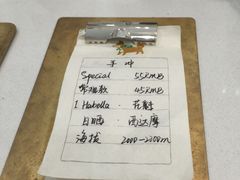 手冲
Special 55RMB
常规款 45RMB
1 Hubella · 花魁
日晒 · 西达摩
海拔 2000-2200m